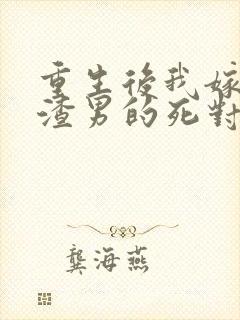 重生後我嫁
渣男的死對
龔海燕